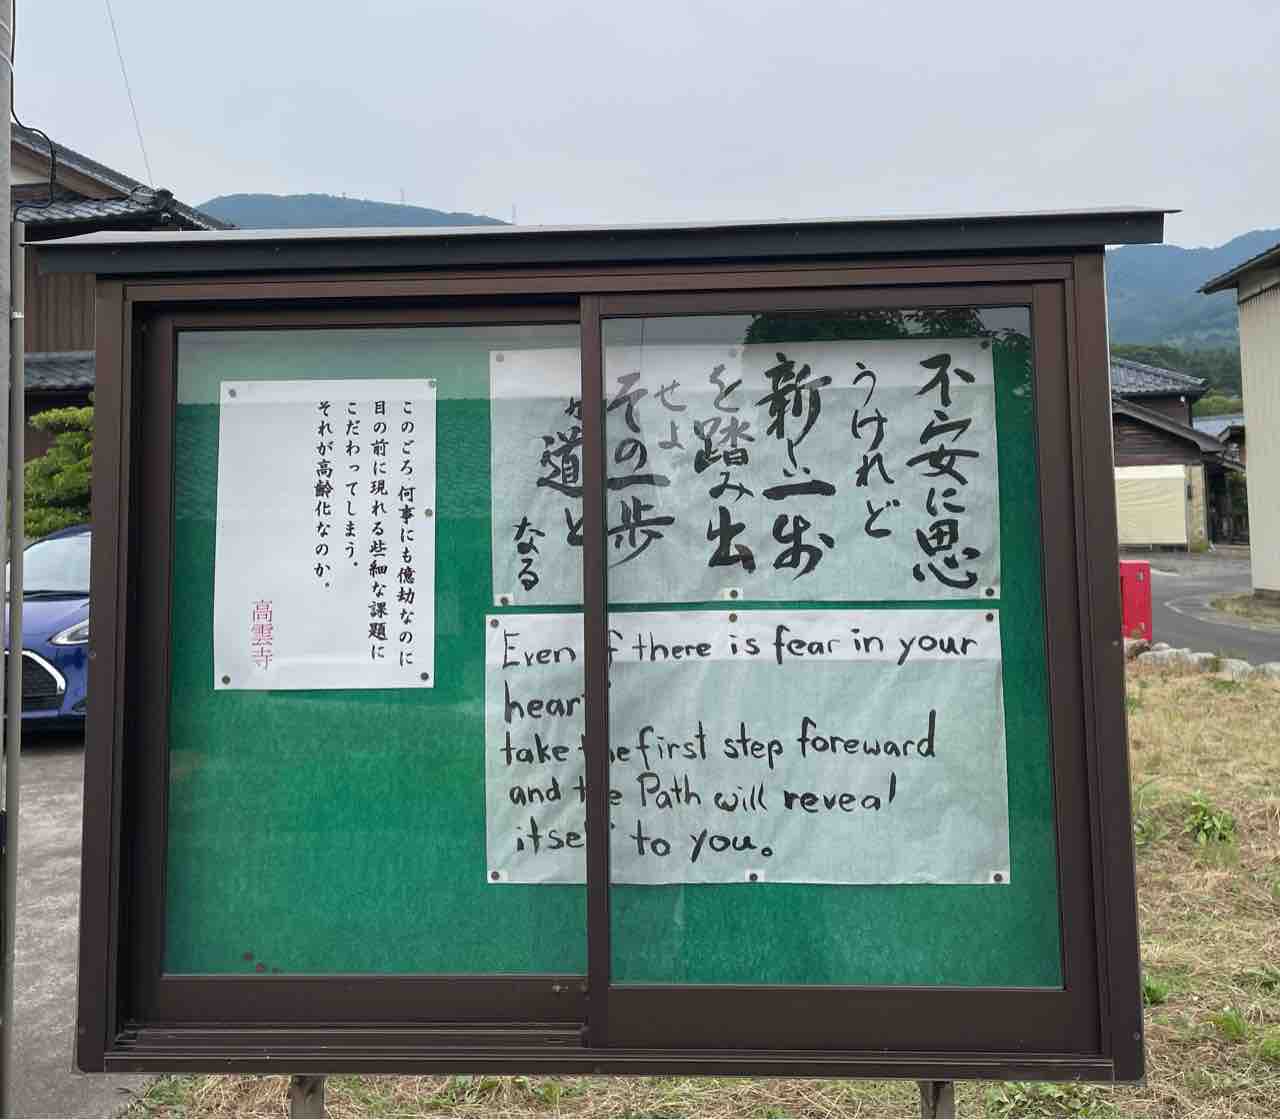 不安に思
うけれど
新しい一歩
を踏み出
せよ
その一歩
が道と
なる
Even if there is fear in your
heart
take the first step foreward
and the Path will reveal
itself to you。
このごろ、何事にも億劫なのに
目の前に現れる些細な課題に
こだわってしまう。
それが高齢化なのか。
高雲寺